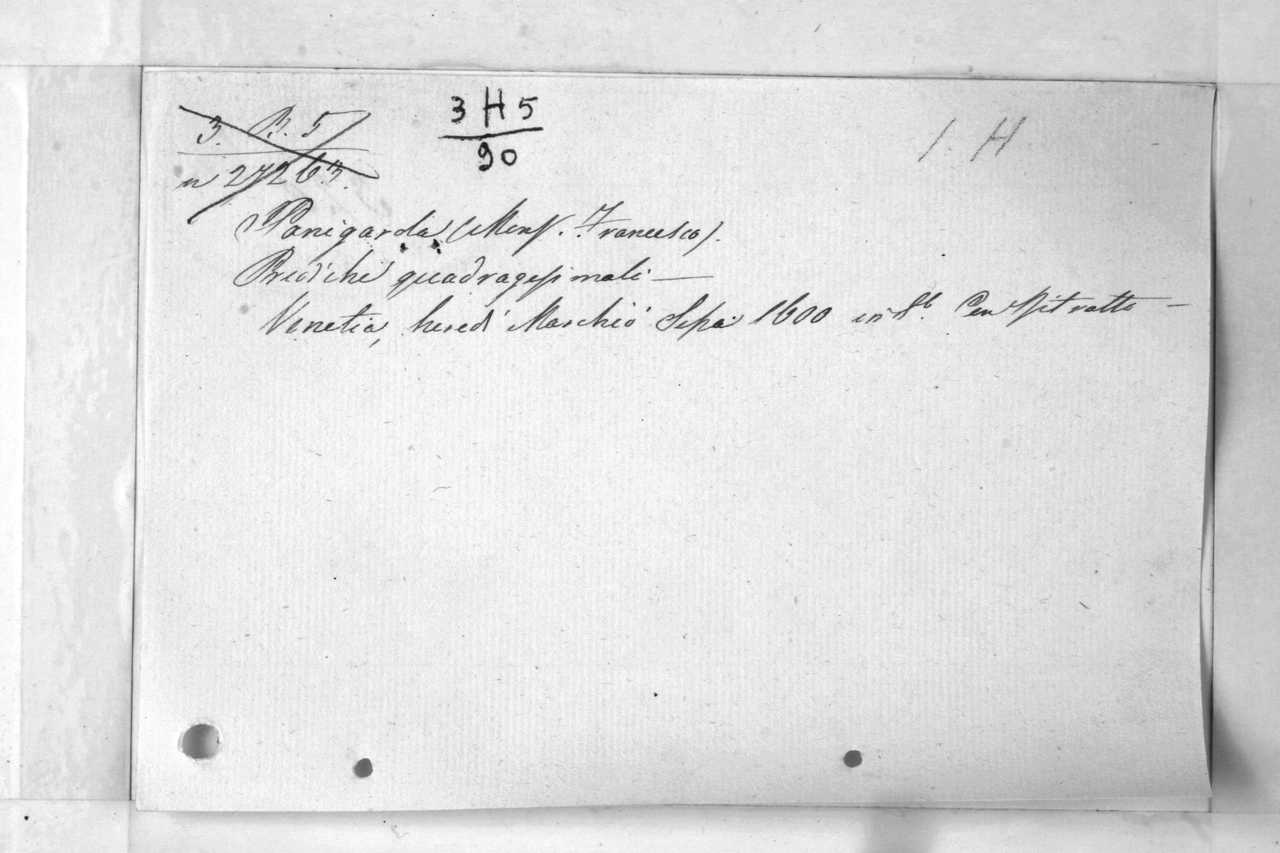 3. B. 5
n 27263.
3 H 5
90
1. H
Panigarda (Mons. Francesco).
Prediche quadragesimali —
Venetia, heredi Marchiò Sessa 1600 in 8.º Con Ritratto —